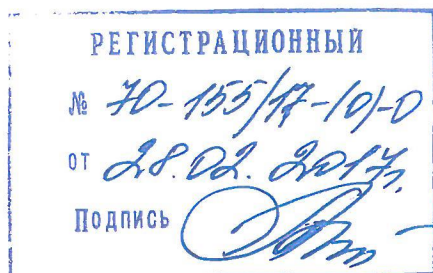 РЕГИСТРАЦИОННЫЙ
№ 70-155/17-(0)-0
от 28.02.2017г.
Подпись